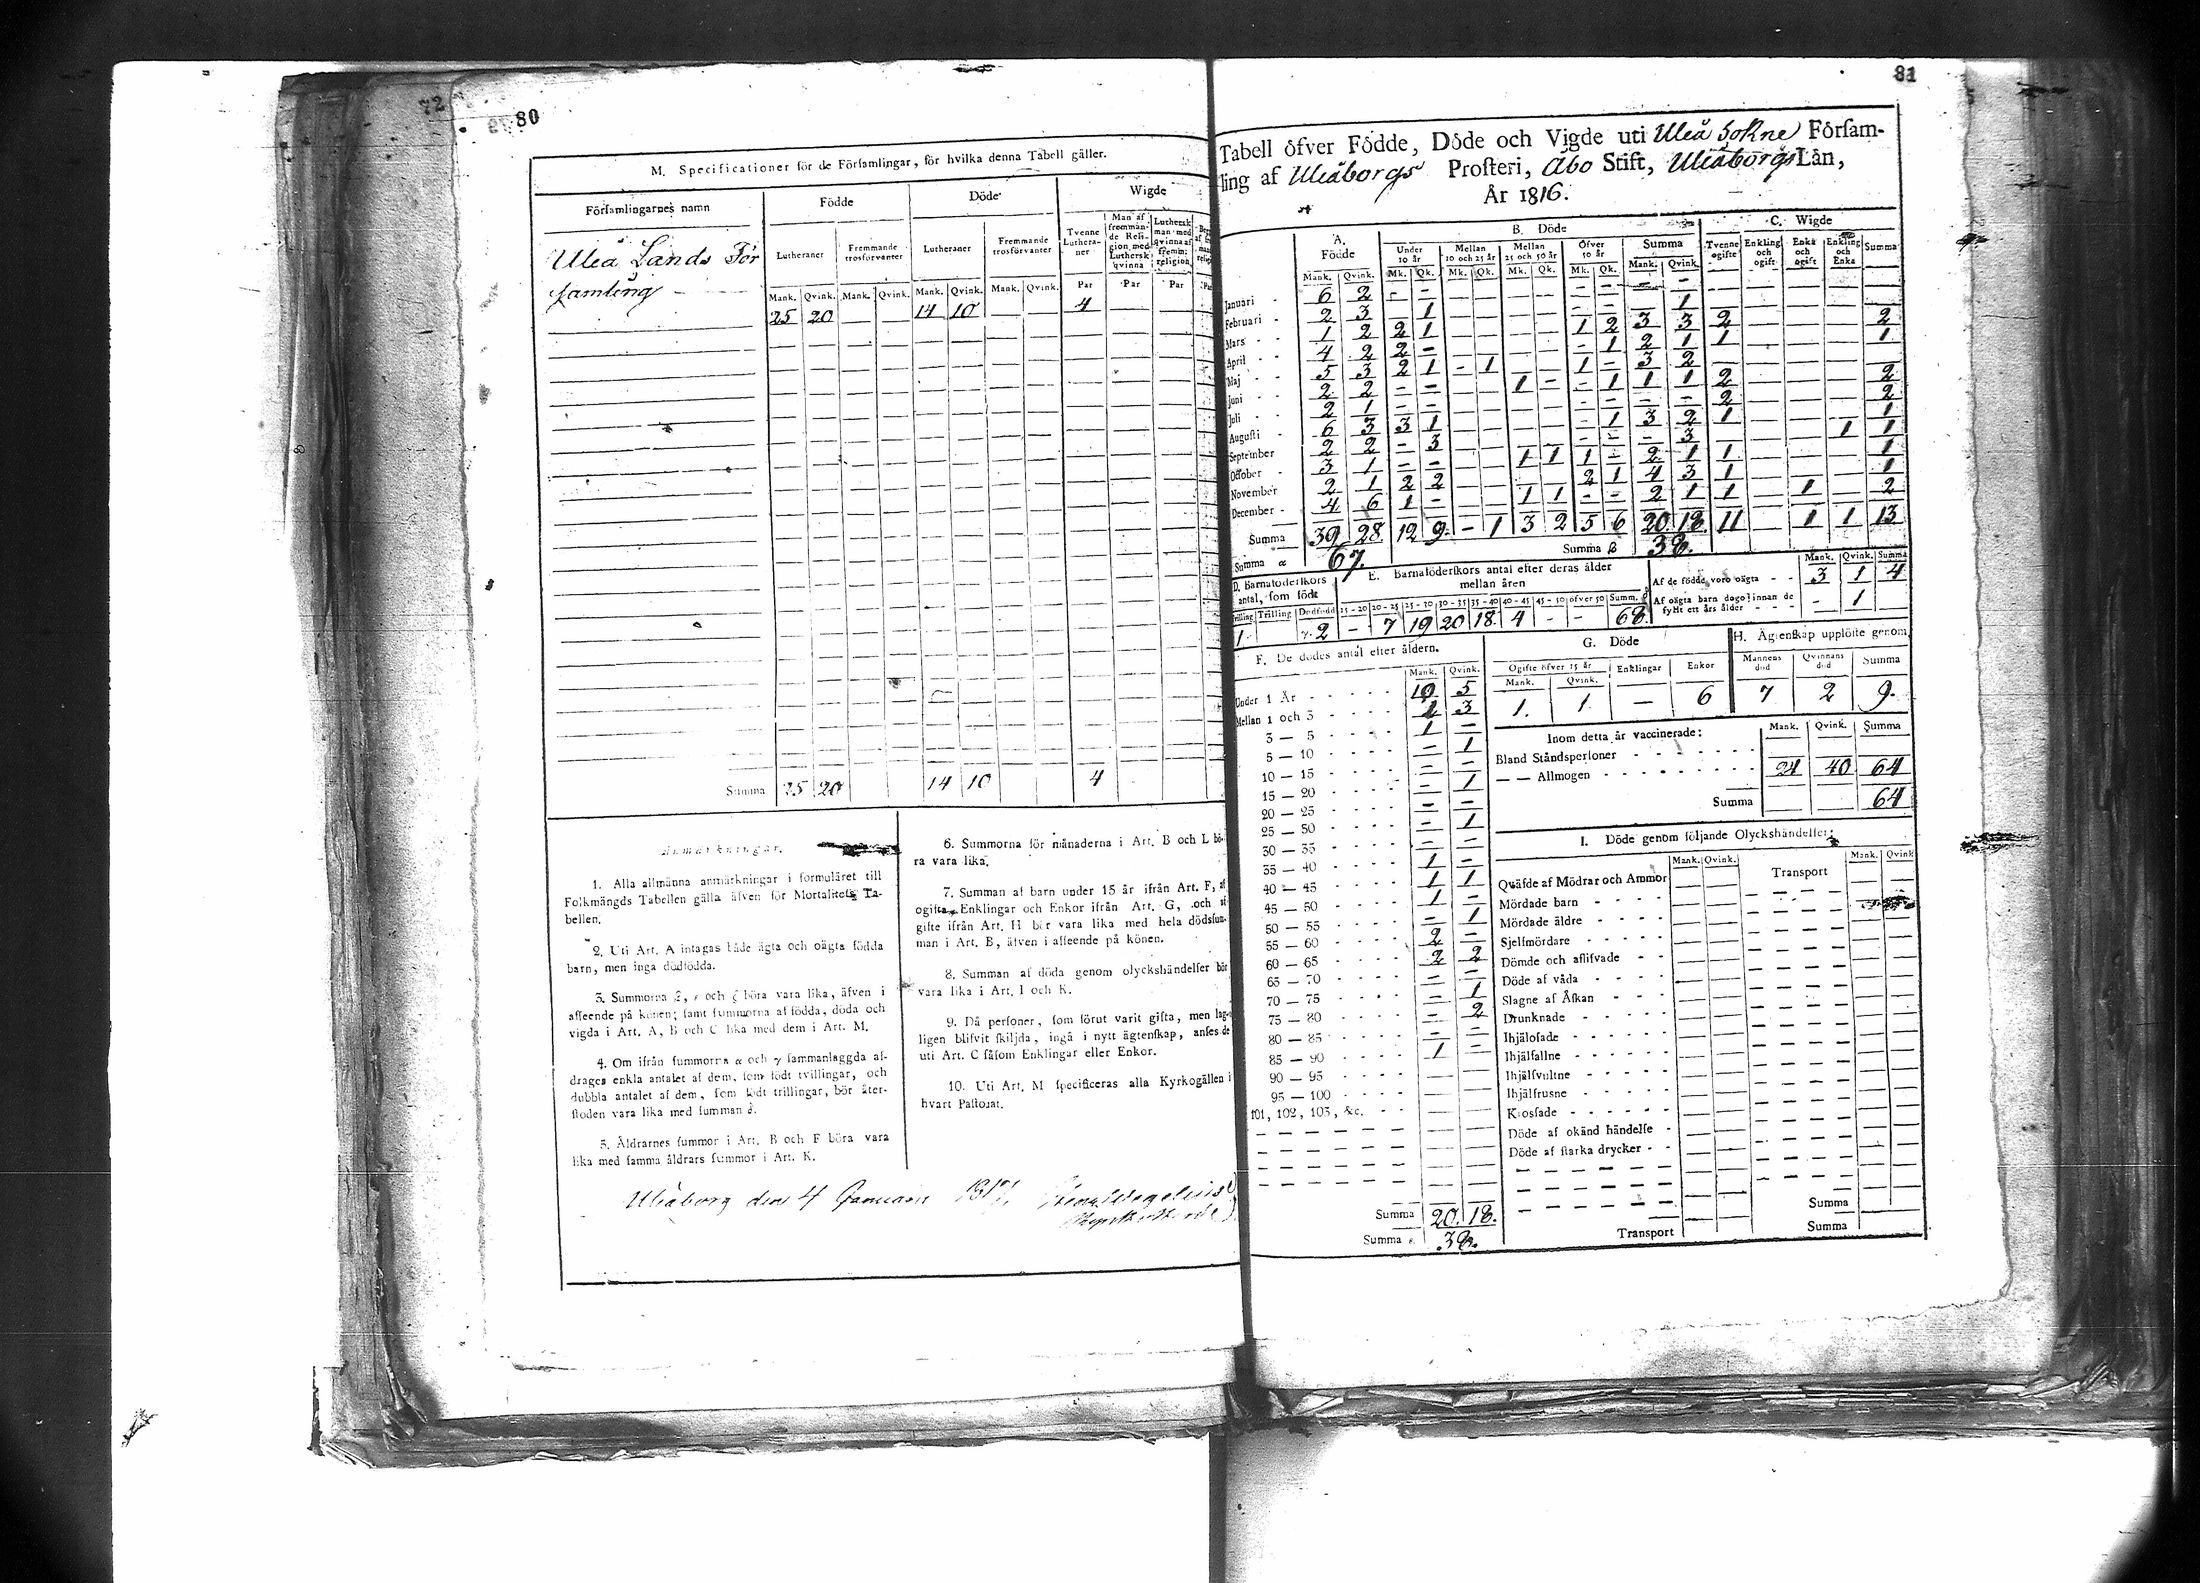 80
72
M. Specificationer för de Församlingar, för hvilka denna Tabell gäller.
Församlingarnes namn
Födde
Döde
Wigde
Lutheraner
Fremmande trosförvanter
Lutheraner
Fremmande trosförvanter
Tvenne Lutheraner
Man af fremmande Religion med Luthersk qvinna
Luthersk man med qvinna af fremm: religion
Mank. Qvink. Mank. Qvink. Mank. Qvink. Mank. Qvink. Par Par Par
Uleå Lands För
samling
25 20 — — 14 10 — — 4
Summa 25 20 14 10 4
Anmärkningar.
1. Alla allmänna anmärkningar i formuläret till
Folkmängds Tabellen gälla äfven för Mortalitets Ta-
bellen.
2. Uti Art. A intagas både ägta och oägta födda
barn, men inga dödfödda.
3. Summorna β, ε och ζ böra vara lika, äfven i
afseende på könen; samt summorna af födda, döda och
vigda i Art. A, B och C lika med dem i Art. M.
4. Om ifrån summorna α och γ sammanlagda af-
drages enkla antalet af dem, som födt tvillingar, och
dubbla antalet af dem, som födt trillingar, bör åter-
stoden vara lika med summan δ.
5. Åldrarnes summor i Art. B och F böra vara
lika med samma åldrars summor i Art. K.
6. Summorna för månaderna i Art. B och L bö-
ra vara lika.
7. Summan af barn under 15 år ifrån Art. F, af
ogifta, Enklingar och Enkor ifrån Art. G, och af
gifte ifrån Art. H bör vara lika med hela dödssum-
man i Art. B, äfven i afseende på könen.
8. Summan af döda genom olyckshändelser bör
vara lika i Art. I och K.
9. Då personer, som förut varit gifta, men lag-
ligen blifvit skiljda, ingå i nytt ägtenskap, anses de
uti Art. C såsom Enklingar eller Enkor.
10. Uti Art. M specificeras alla Kyrkogällen i
hvart Pastorat.
Uleåborg den 4 Januarii 1817.
81
Tabell öfver Födde, Döde och Vigde uti Uleå Sokne Försam-
ling af Uleåborgs Prosteri, Åbo Stift, Uleåborgs Län,
År 1816.
A. Födde
B. Döde
C. Wigde
Under 10 år
Mellan 10 och 25 år
Mellan 25 och 50 år
Öfver 50 år
Summa
Tvenne ogifte
Enkling och ogift
Enka och ogift
Enkling och Enka
Summa
Mank. Qvink. Mk. Qk. Mk. Qk. Mk. Qk. Mk. Qk. Mank. Qvink.
Januari 6 2 — — — — — — — — — —
Februari 2 3 — 1 — — — — — — — 1
Mars 1 2 2 1 — — — — 1 2 3 3 2 2
April 4 2 2 — — — — — — 1 2 1 1 1
Maj 5 3 2 1 — 1 — — 1 — 3 2
Juni 2 2 — — — — 1 — — 1 1 1 2 2
Juli 2 1 — — — — — — — — — — 2 2
Augusti 6 3 3 1 — — — — — 1 3 2 1 1
September 2 2 — 3 — — — — — — — 3 1 1
October 3 1 — — — — 1 1 1 — 2 1 1 1
November 2 1 2 2 — — — — 2 1 4 3 1 1
December 4 6 1 — — — 1 1 — — 2 1 1 1 2
Summa 39 28 12 9 — 1 3 2 5 6 20 18 11 1 1 13
Summa α 67.
Summa β 38.
D. Barnaföderskors antal, som födt
Tvilling Trilling Dödfödd
1. γ. 2
E. Barnaföderskors antal efter deras ålder mellan åren
15-20 20-25 25-30 30-35 35-40 40-45 45-50 öfver 50 Summ. δ
— 7 19 20 18 4 — — 68.
Mank. Qvink. Summa
Af de födde voro oägta 3 1 4
Af oägta barn dogo innan de
fyllt ett års ålder — 1
F. De dödes antal efter åldern.
Mank. Qvink.
Under 1 År 10 5
Mellan 1 och 3 1 3
3 — 5 1 —
5 — 10 — 1
10 — 15 — —
15 — 20 — 1
20 — 25 — —
25 — 30 — 1
30 — 35 — —
35 — 40 1 —
40 — 45 1 1
45 — 50 1 —
50 — 55 — 1
55 — 60 2 —
60 — 65 2 2
65 — 70 — —
70 — 75 — 1
75 — 80 — 2
80 — 85 — —
85 — 90 1 —
90 — 95
95 — 100
101, 102, 103, &c.
Summa 20. 18.
Summa ε. 38.
G. Döde
Ogifte öfver 15 år
Mank. Qvink. Enklingar Enkor
1. 1 — 6
H. Ägtenskap upplöste genom
Mannens död Qvinnans död Summa
7 2 9.
Inom detta år vaccinerade: Mank. Qvink. Summa
Bland Ståndspersoner
— — Allmogen 24 40 64
Summa 64
I. Döde genom följande Olyckshändelser:
Mank. Qvink. Transport Mank. Qvink
Qväfde af Mödrar och Ammor
Mördade barn
Mördade äldre
Sjelfmördare
Dömde och aflifvade
Döde af våda
Slagne af Åskan
Drunknade
Ihjälosade
Ihjälfallne
Ihjälsvultne
Ihjälfrusne
Krossade
Döde af okänd händelse
Döde af starka drycker
Summa
Transport Summa